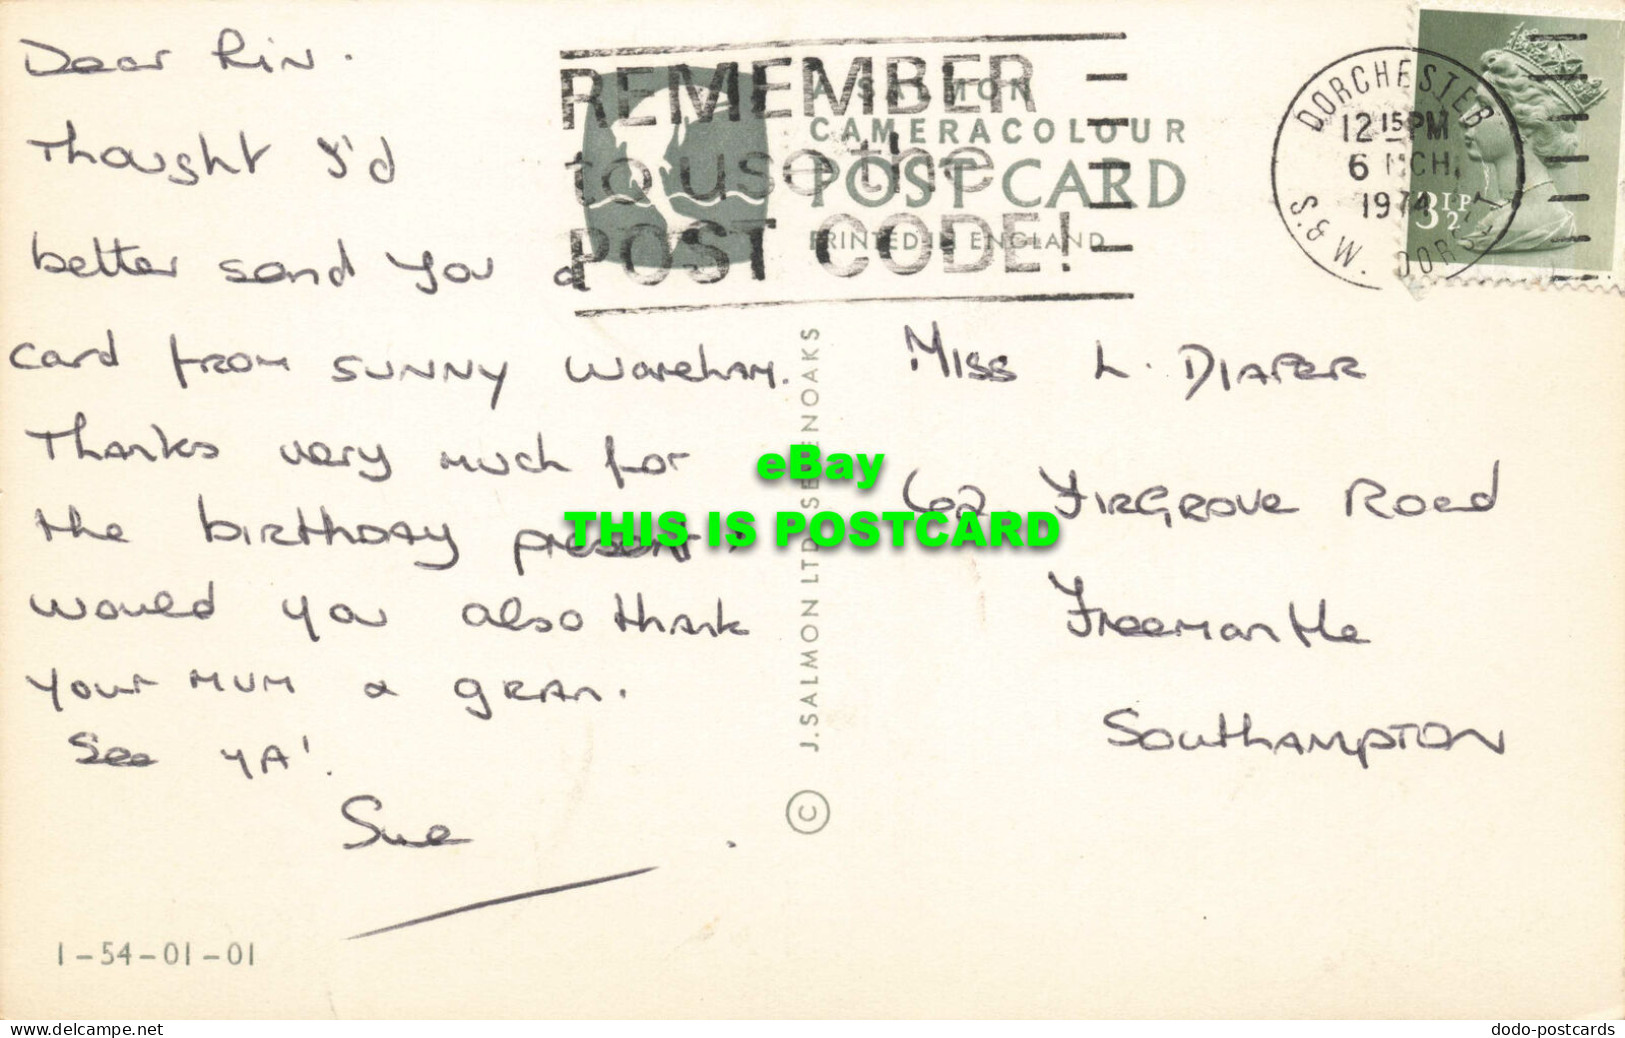 Dear Lin.
Thought I'd
better send you a
card from SUNNY Wareham.
Thanks very much for
the birthday present,
would you also thank
your MUM & GRAN.
See YA!
Sue
1-54-01-01
REMEMBER
to use the
POST CODE!
A SALMON
CAMERACOLOUR
POST CARD
PRINTED IN ENGLAND
DORCHESTER
12 15 PM
6 MCH
1974
S.& W. DORSET
3½P
MISS L. DIAPER
62, FIRGROVE Road
Freemantle
SOUTHAMPTON
© J. SALMON LTD SEVENOAKS
eBay
THIS IS POSTCARD
www.delcampe.net
dodo-postcards